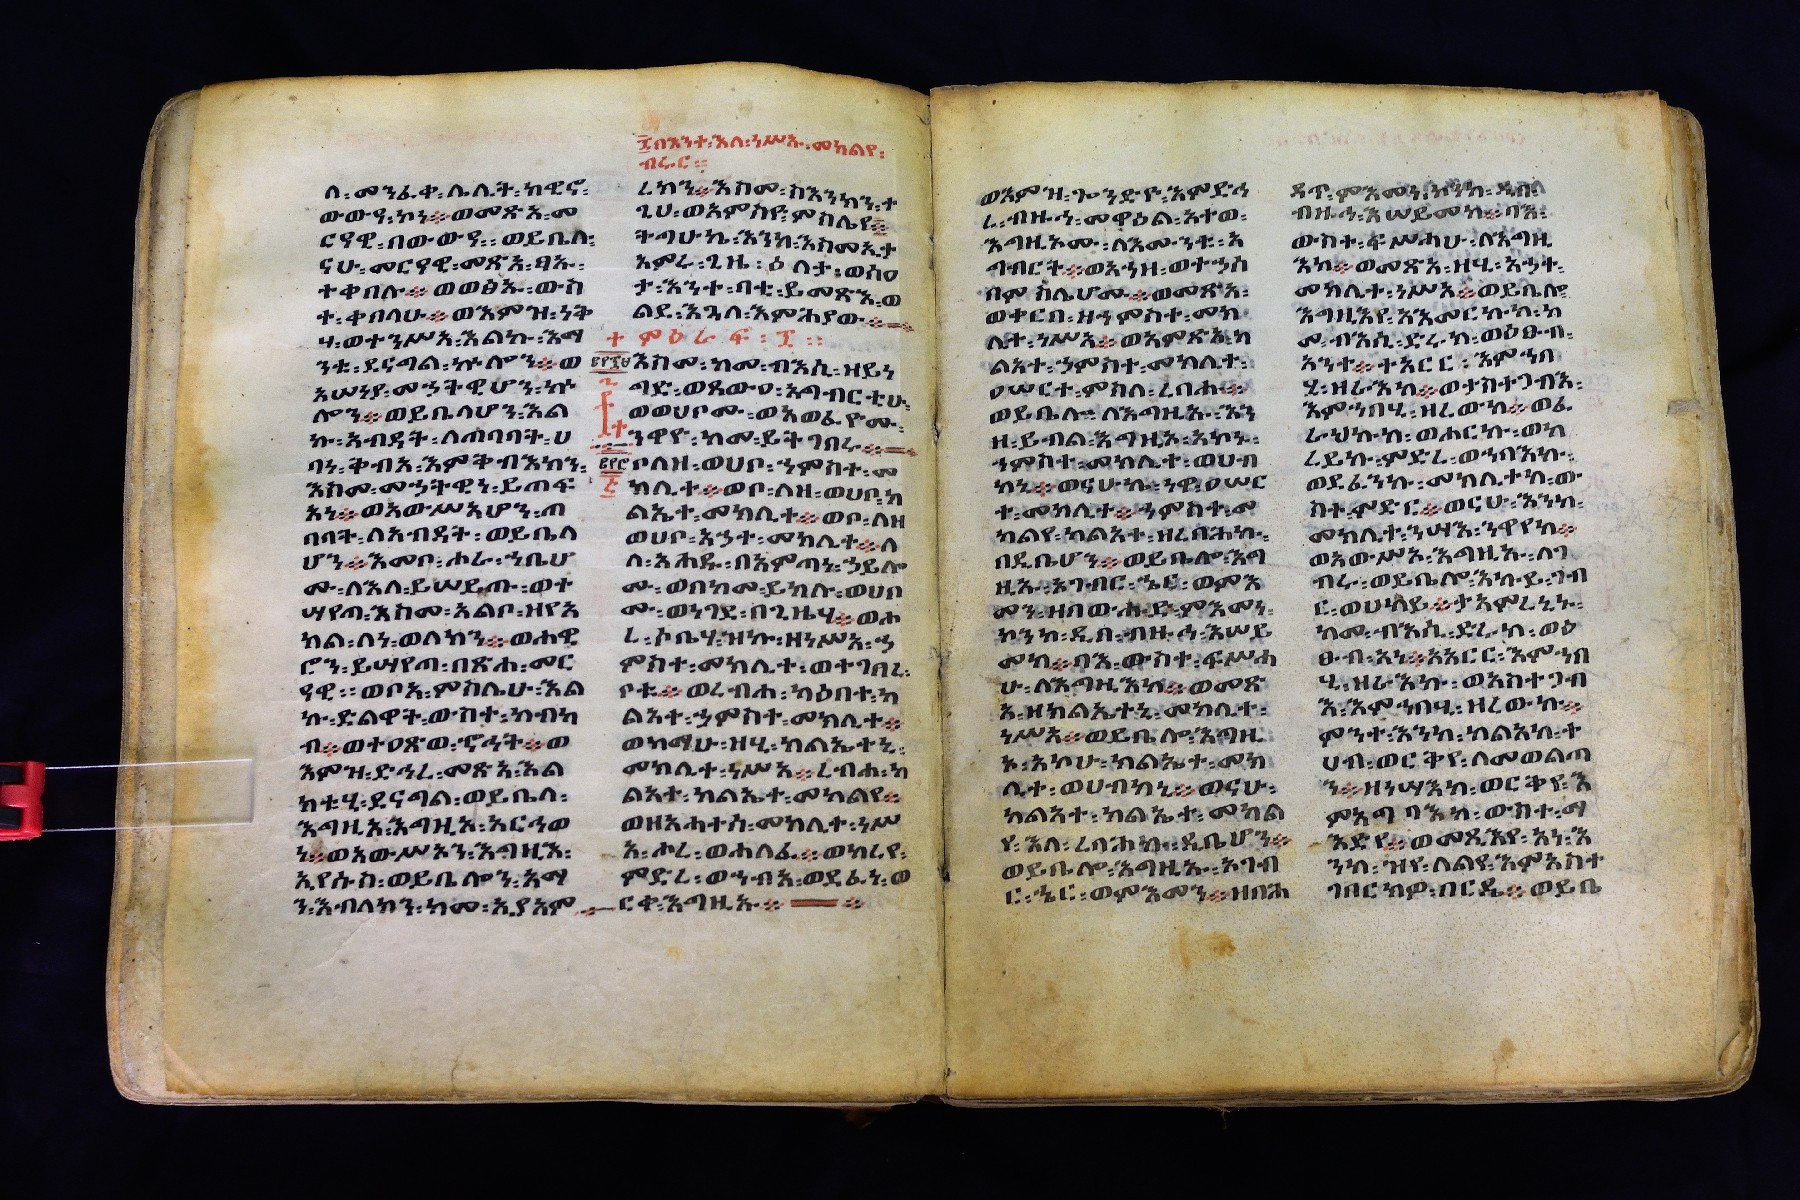 ለ፡መንፈቀ፡ሌሊት፡ከዊኖ፡
ውውዓ፡ኮነ።ወመጽአ፡መ
ርዓዊ፡በውውዓ።ወይቤለ፡
ናሁ፡መርዓዊ፡መጽአ፡ፃኡ፡
ተቀበሉ።ወወፅኡ፡ውስ
ተ፡ቀበላሁ።ወእምዝ፡ነቅ
ሃ፡ወተንሥአ፡እልኩ፡እማ
ንቱ፡ደናግል፡ኵሎን።ወ
አሠነያ፡መኃትዊሆን፡ኵ
ሎን።ወይቤላሆን፡እል
ኩ፡አብዳት፡ለጠባባት፡ሀ
ባነ፡ቅብአ፡እምቅብእክን፡
እስመ፡መኃትዊነ፡ይጠፍ
አነ።ወአውሥአሆን፡ጠ
ባባት፡ለአብዳት፡ወይቤላ
ሆን።እመቦ፡ሐራ፡ኀቤሆ
ሙ፡ለእለ፡ይሠይጡ፡ወተ
ሣየጣ፡እስመ፡አልቦ፡ዘየአ
ክል፡ለነ፡ወለክን።ወሐዊ
ሮን፡ይሣየጣ፡በጽሐ፡መር
ዓዊ።ወቦአ፡ምስሌሁ፡እል
ኩ፡ድልዋት፡ውስተ፡ከብካ
ብ።ወተዐጽወ፡ኆኅት።ወ
እምዝ፡ድኅረ፡መጽአ፡እል
ክቱሂ፡ደናግል፡ወይቤላ፡
እግዚኦ፡እግዚኦ፡አርኅወ
ነ።ወአውሥኦን፡እግዚእ፡
ኢየሱስ፡ወይቤሎን፡አማ
ን፡እብለክን፡ከመ፡ኢያአም
፲በእንተ፡እለ፡ነሥኡ፡መክልየ፡
ብሩር።
ረክን።እስመ፡ስእንክን፡ት
ጊሀ፡ወአምስዮ፡ምስሌየ።
ትጋሁኬ፡እንከ፡እስመ፡ኢታ
አምሩ፡ጊዜ፡ዕለታ፡ወሰዐ
ታ፡እንተ፡ባቲ፡ይመጽእ፡ወ
ልደ፡እጓለ፡እምሕያው።
ምዕራፍ፡፲።
እስመ፡ከመ፡ብእሲ፡ዘይነ
ግድ፡ወጸውዐ፡አግብርቲሁ፡
ወወሀቦሙ፡ወአወፈዮሙ፡
ንዋዮ፡ከመ፡ይትገበሩ።
ቦለዘ፡ወሀቦ፡ኀምስተ፡መ
ክሊተ።ወቦ፡ለዘ፡ወሀቦ፡ክ
ልኤተ፡መክሊተ።ወቦ፡ለዘ
ወሀቦ፡አኃተ፡መክሊተ።ለ
ለ፡አሕዱ፡በአምጣነ፡ኃይሎ
ሙ፡ወበከመ፡ይክሉ፡ወሀቦ
ሙ፡ወነገደ፡በጊዜሃ።ወሖ
ረ፡ሶቤሃ፡ዝኩ፡ዘነሥአ፡ኃ
ምስተ፡መክሊተ፡ወተገበረ፡
ቦቱ።ወረብሐ፡ካዕበተ፡ካ
ልአተ፡ኃምስተ፡መክሊተ።
ወከማሁ፡ዘሂ፡ክልኤተኒ፡
መክሊተ፡ነሥአ።ረብሐ፡ካ
ልአተ፡ክልኤተ፡መክልየ።
ወዘአሐተሰ፡መክሊተ፡ነሥ
አ፡ሖረ፡ወሐለፈ።ወከረየ፡
ምድረ፡ወኀብአ፡ወደፈነ፡ወ
ርቀ፡እግዚኡ።
ወእምዝ፡ጐንድዮ፡እምድኅ
ረ፡ብዙኅ፡መዋዕል፡አተወ፡
እግዚኦሙ፡ለእሙንቱ፡አ
ግብርት።ወአኀዘ፡ወተኃሰ
በም፡ስሌሆሙ።ወመጽአ፡
ወቀርበ፡ዘኀምስተ፡መክ
ሊተ፡ነሥአ።ወአምጽአ፡ካ
ልአተ፡ኃምስተ፡መክሊተ፡
ዐሠርተ፡ምስለ፡ረባሐ።
ወይቤሎ፡ለእግዚኡ፡እን
ዘ፡ይብል፡እግዚኦ፡አኮኑ፡
ኀምስተ፡መክሊተ፡ወሀብ
ከኒ።ወናሁኬ፡ነዋ፡ዐሠር
ተ፡መክሊተ።ኀምስተ፡መ
ክልየ፡ካልአተ፡ዘረባሕኩ፡
በዲቤሆን።ወይቤሎ፡እግ
ዚኡ፡አገብር፡ኄር፡ወምእ
መን፡ዘበውሑድ፡ምእመነ፡
ኮንከ፡ዲበ፡ብዙኅ፡እሠይ
መከ።ባእ፡ውስተ፡ፍሥሐ
ሁ፡ለእግዚእከ።ወመጽ
አ፡ዘክልኤተኒ፡መክሊተ፡
ነሥአ።ወይቤሎ፡እግዚ
ኦ፡አኮሁ፡ክልኤተ፡መክ
ሊተ፡ወሀብከኒ።ወናሁ፡
ካልአተ፡ክልኤተ፡መክል
የ፡እለ፡ረባሕኩ፡ዲቤሆን።
ወይቤሎ፡እግዚኡ፡አገብ
ር፡ኄር፡ወምእመን።ዘበሕ
ዳጥ፡ምእመነ፡ኮንከ፡ዲበ፡
ብዙኅ፡እሠይመከ።ባእ፡
ውስተ፡ፍሥሐሁ፡ለእግዚ
እከ።ወመጽአ፡ዘሂ፡አኃተ፡
መክሊተ፡ነሥአ።ወይቤሎ፡
እግዚእየ፡አአምርከ፡ከ
መ፡ብእሲ፡ድሩክ፡ወዕፁብ፡
አንተ።ተአርር፡እምኀበ
ሂ፡ዘራእከ።ወታስተጋብእ፡
እምኀበሂ፡ዘረውከ።ወፈ
ራህኩከ፡ወሐርኩ፡ወከ
ረይኩ፡ምድረ፡ወኀባእኩ፡
ወደፈንኩ፡መክሊተከ፡ው
ስተ፡ምድር።ወናሁ፡እንከ፡
መክሊተ፡ነሣእ፡ንዋየከ።
ወአውሥአ፡እግዚኡ፡ለገ
ብሩ፡ወይቤሎ፡እኩይ፡ገብ
ር፡ወሀካይ።ታአምረኒኑ፡
ከመ፡ብእሲ፡ድሩክ፡ወዕ
ፁብ፡አነ።አአርር፡እምኀበ
ሂ፡ዘራእኩ፡ወአስተጋብ
እ፡እምኀበሂ፡ዘረውኩ።
ምንተ፡እንከ፡ከልአከ፡ተ
ሀብ፡ወርቅየ፡ለመወልጣ
ን።ዘነሣእከ፡ወርቅየ፡እ
ምእግባእከ፡ውስተ፡ማ
እድየ።ወመጺእየ፡አነ፡እ
ንከ፡ዝየ፡ለልየ፡እምአስተ
ገበርክዎ፡በርዴ።ወይቤ